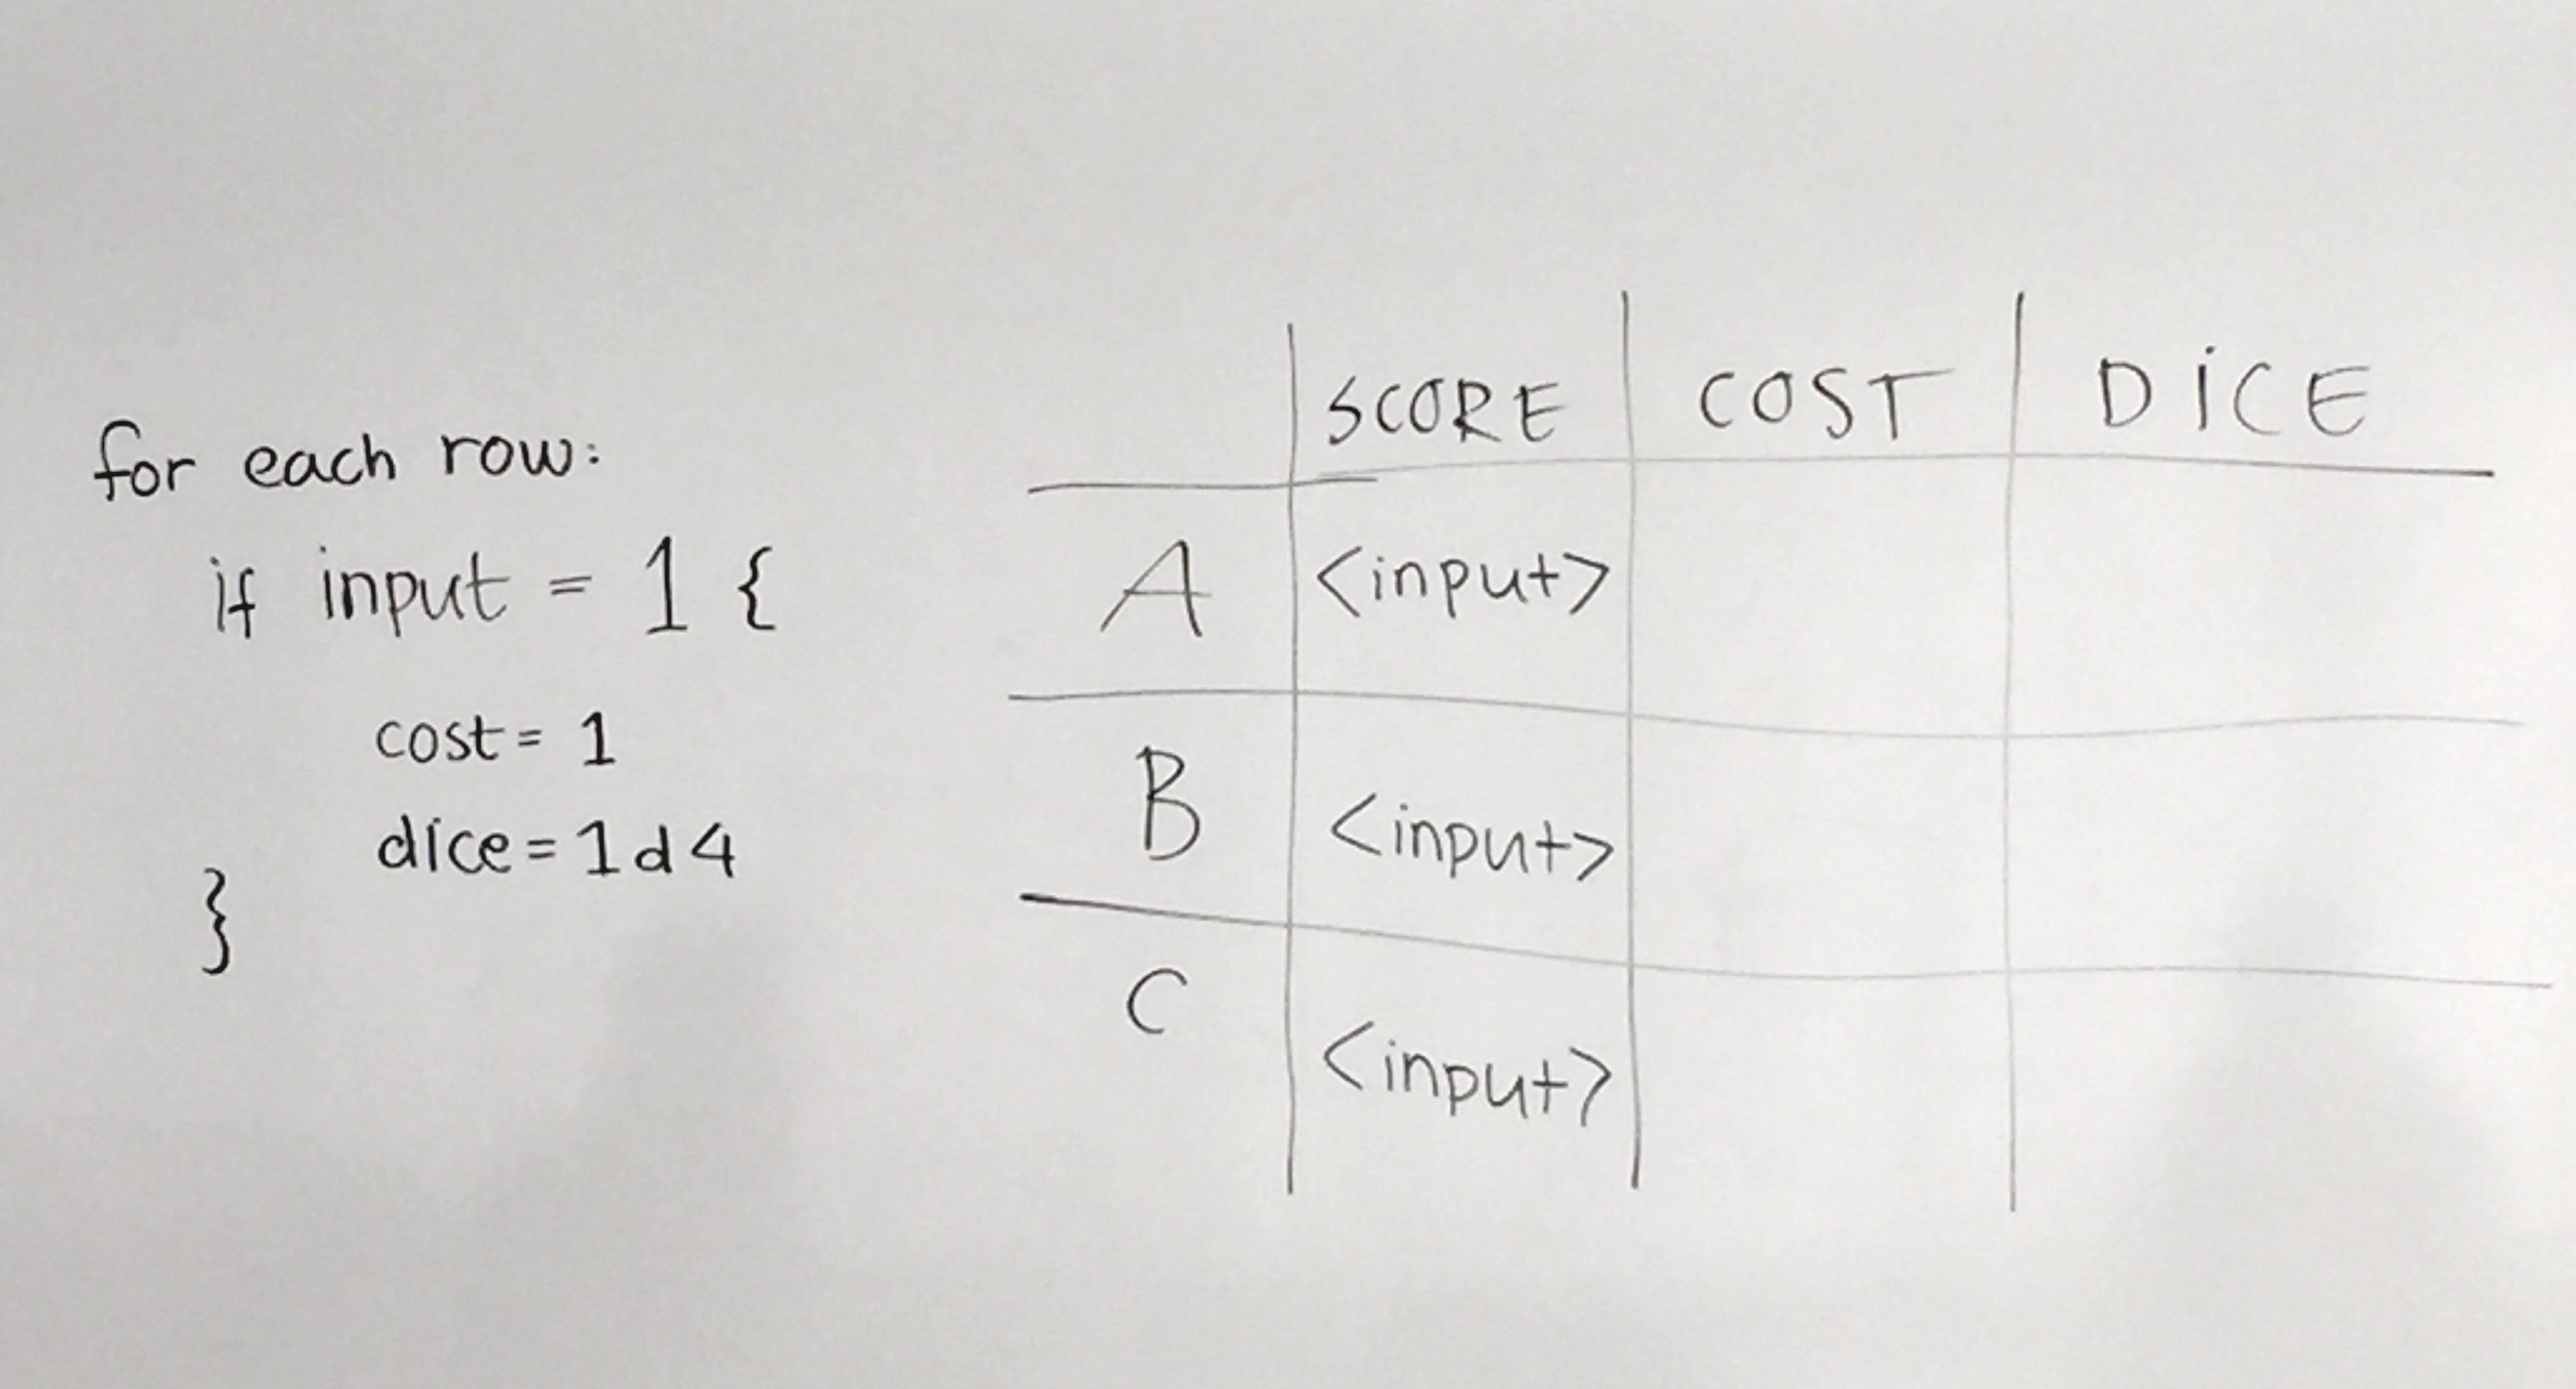 for each row:
if input = 1 {
cost = 1
dice = 1d4
}
SCORE COST DICE
A <input>
B <input>
C <input>